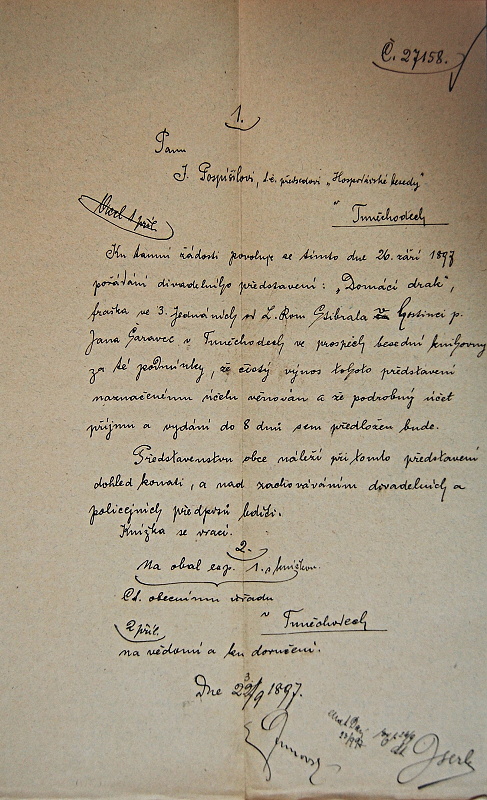 Č. 27158.
1.
Panu
J. Pospíšilovi, t.č. předsedovi „Hospodářské besedy"
v Tuněchodech
1 příl.
Ku tamní žádosti povoluje se tímto dne 26. září 1897
pořádání divadelního představení: „Domácí drak",
fraška ve 3. jednáních od L. Rom Stibrala v hostinci p.
Jana Šaravec v Tuněchodech ve prospěch besední knihovny
za té podmínky, že čistý výnos tohoto představení
naznačenému účelu věnován a že podrobný účet
příjmu a vydání do 8 dnů sem předložen bude.
Představenstvu obce náleží při tomto představení
dohled konati, a nad zachováváním divadelních a
policejních předpisů bdíti.
Knížka se vrací.
2.
Na obal exp. 1. s knížkou.
Ct. obecnímu úřadu
v Tuněchodech
2 příl.
na vědomí a ku doručení.
Dne 23/9 1897.